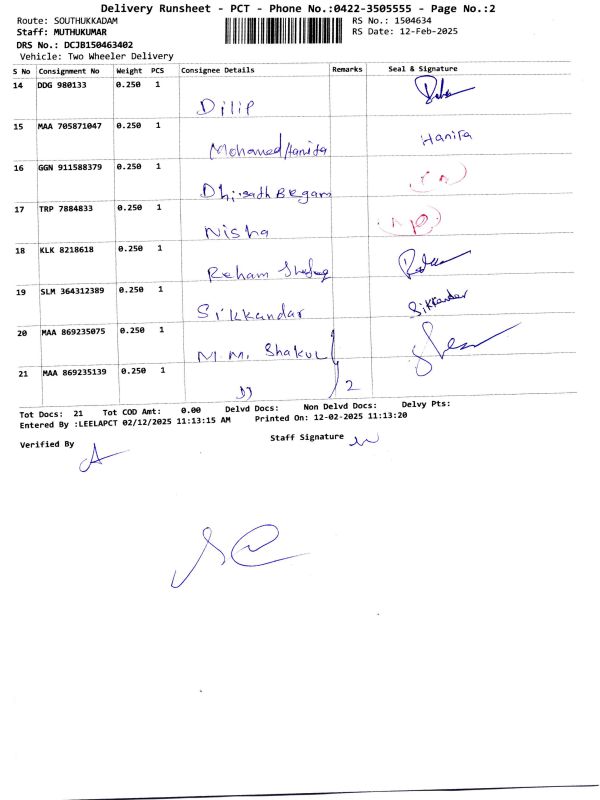 Delivery Runsheet - PCT - Phone No.:0422-3505555 - Page No.:2
Route: SOUTHUKKADAM RS No.: 1504634
Staff: MUTHUKUMAR RS Date: 12-Feb-2025
DRS No.: DCJB150463402
Vehicle: Two Wheeler Delivery
S No Consignment No Weight PCS Consignee Details Remarks Seal & Signature
14 DDG 980133 0.250 1
Dilip
15 MAA 705871047 0.250 1
Mohamed Hanifa Hanifa
16 GGN 911588379 0.250 1
Dhirsath Begam
17 TRP 7884833 0.250 1
Nisha
18 KLK 8218618 0.250 1
Reham
19 SLM 364312389 0.250 1
Sikkandar Sikkander
20 MAA 869235075 0.250 1
M.M. Shakul
21 MAA 869235139 0.250 1
2
Tot Docs: 21 Tot COD Amt: 0.00 Delvd Docs: Non Delvd Docs: Delvy Pts:
Entered By :LEELAPCT 02/12/2025 11:13:15 AM Printed On: 12-02-2025 11:13:20
Verified By Staff Signature